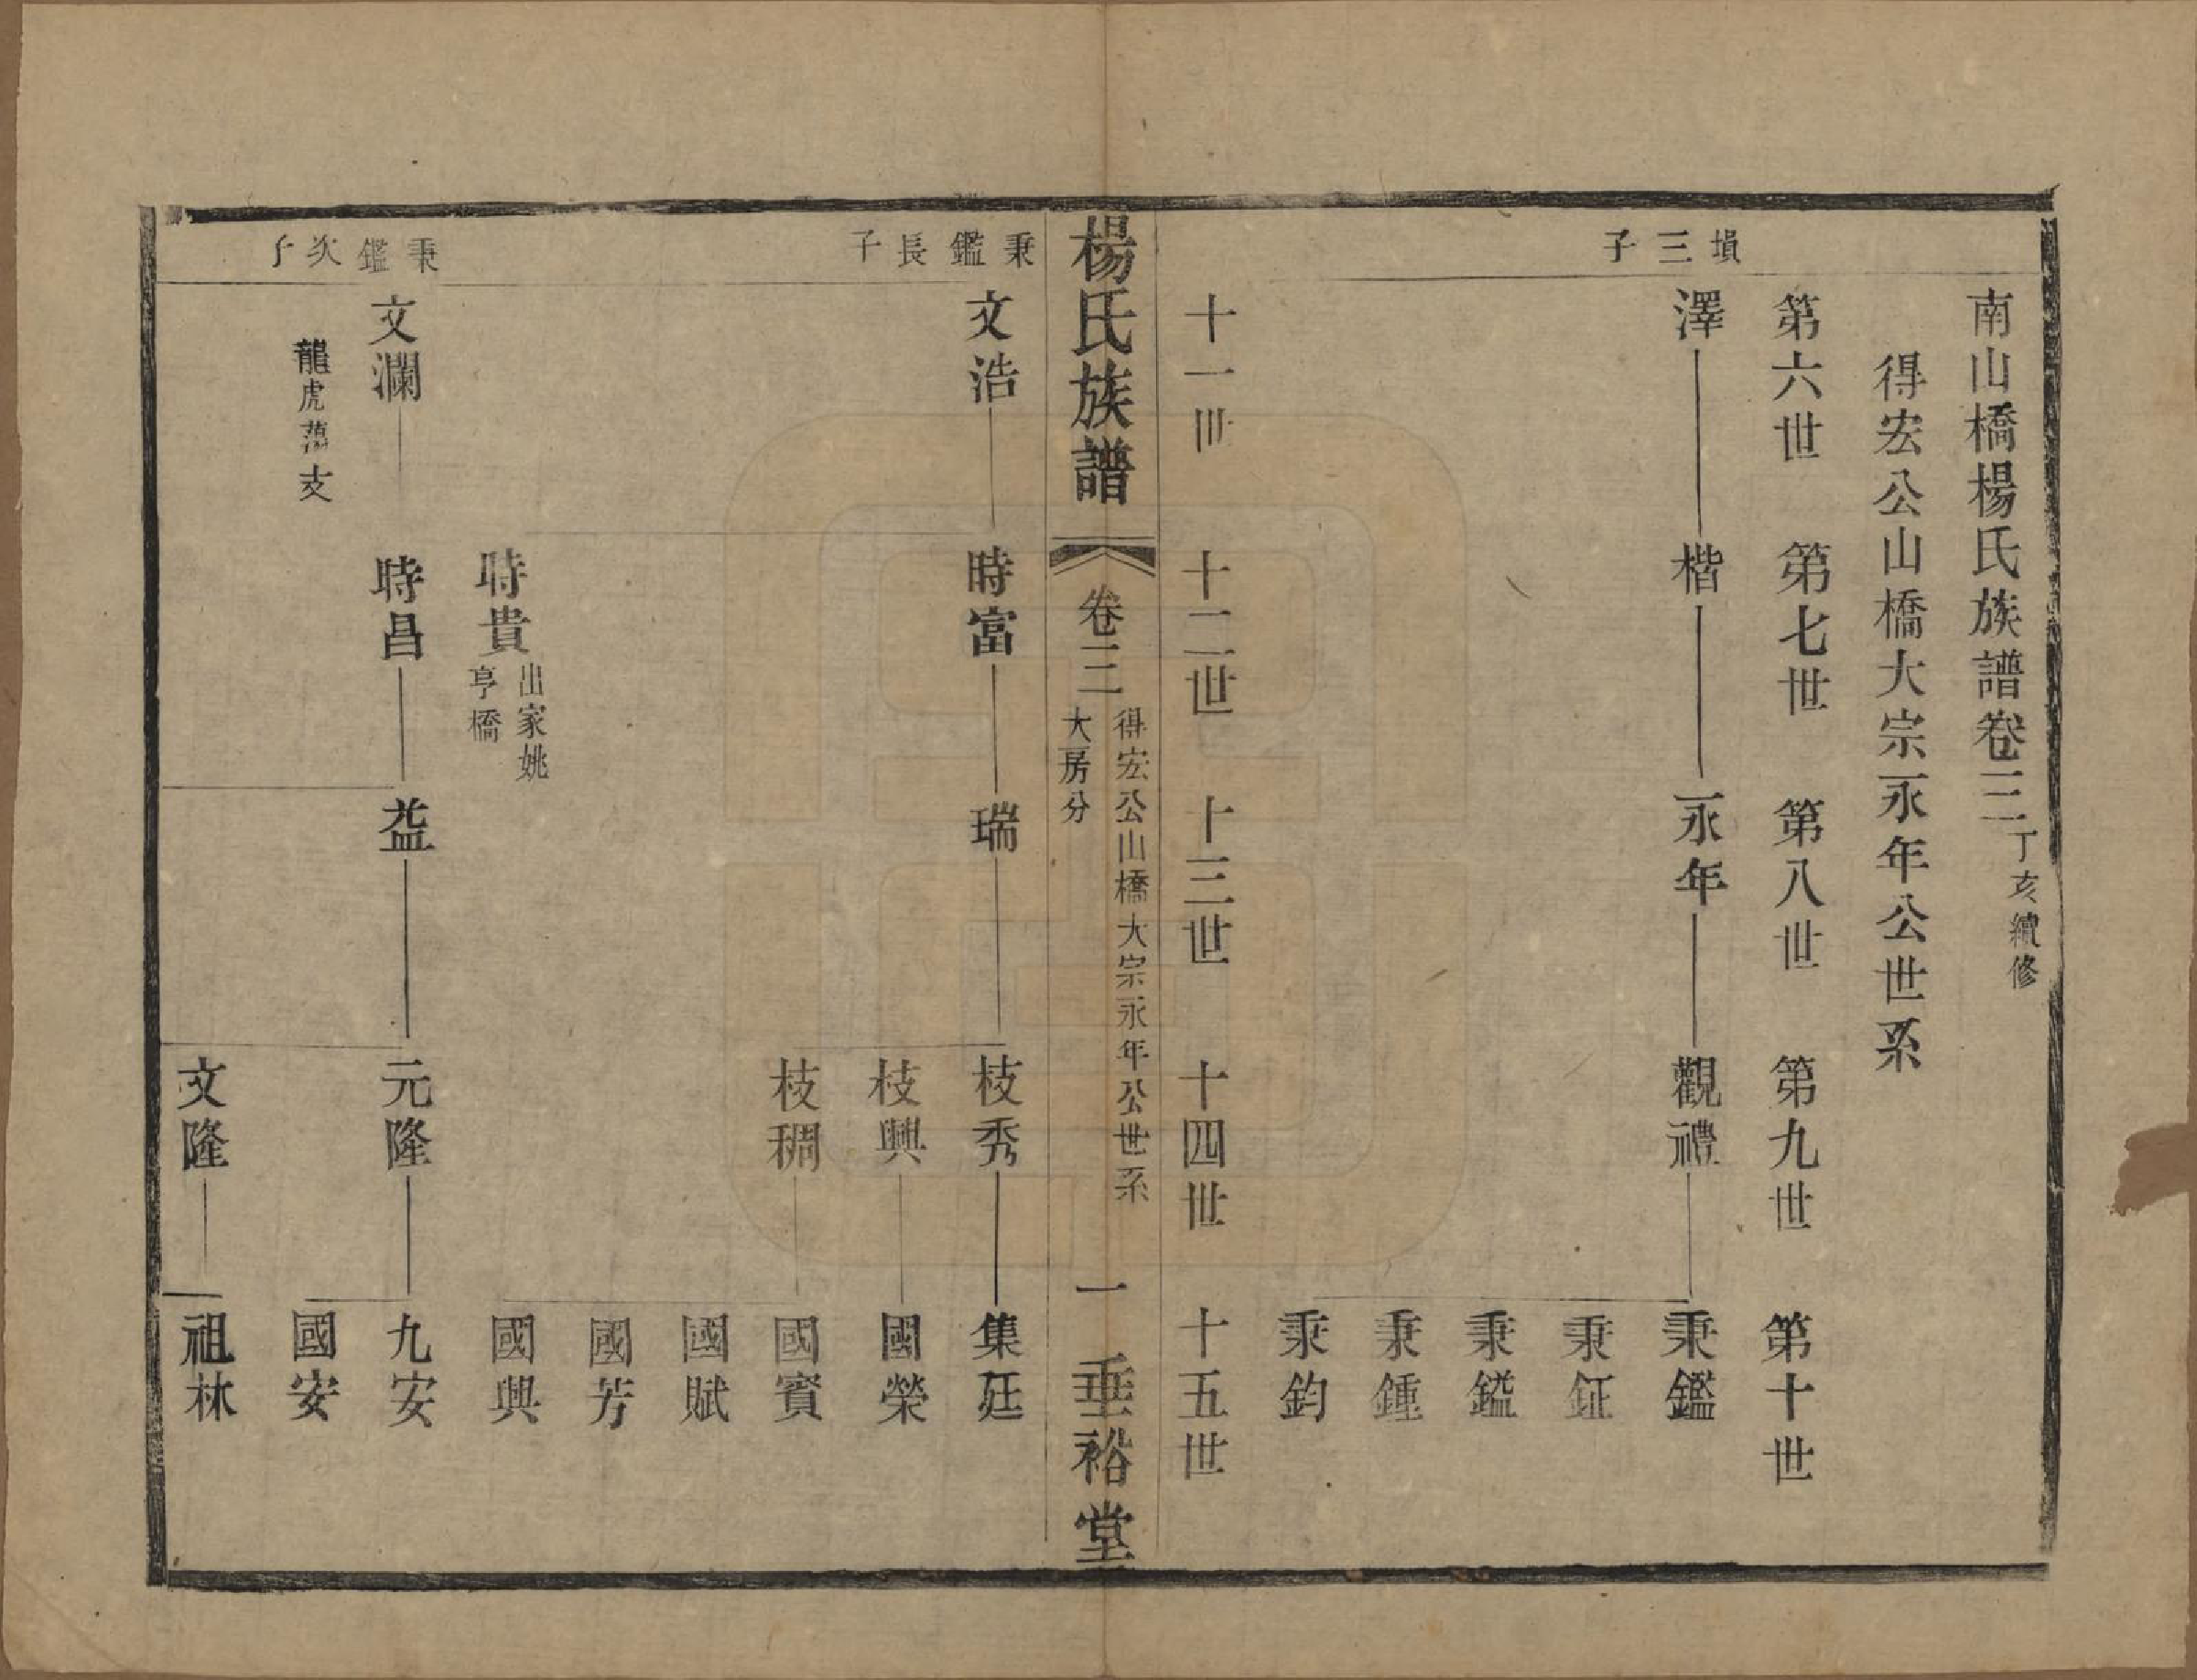 南山橋楊氏族譜卷三 丁亥續修
得宏公山橋大宗永年公世系
塤三子
第六世 第七世 第八世 第九世 第十世
澤 楷 永年 觀禮 秉鑑
秉鉦
秉鎰
秉鍾
秉鈞
十一世 十二世 十三世 十四世 十五世
楊氏族譜 卷三 得宏公山橋大宗永年公世系
大房分
一 垂裕堂
秉鑑長子
文浩 時富 瑞 枝秀 集廷
枝興 國榮
枝稠 國賓
國賦
國芳
時貴 出家姚
亨橋
國興
秉鑑次子
文瀾 時昌 益 元隆 九安
龍虎蕩支
國安
文隆 祖林